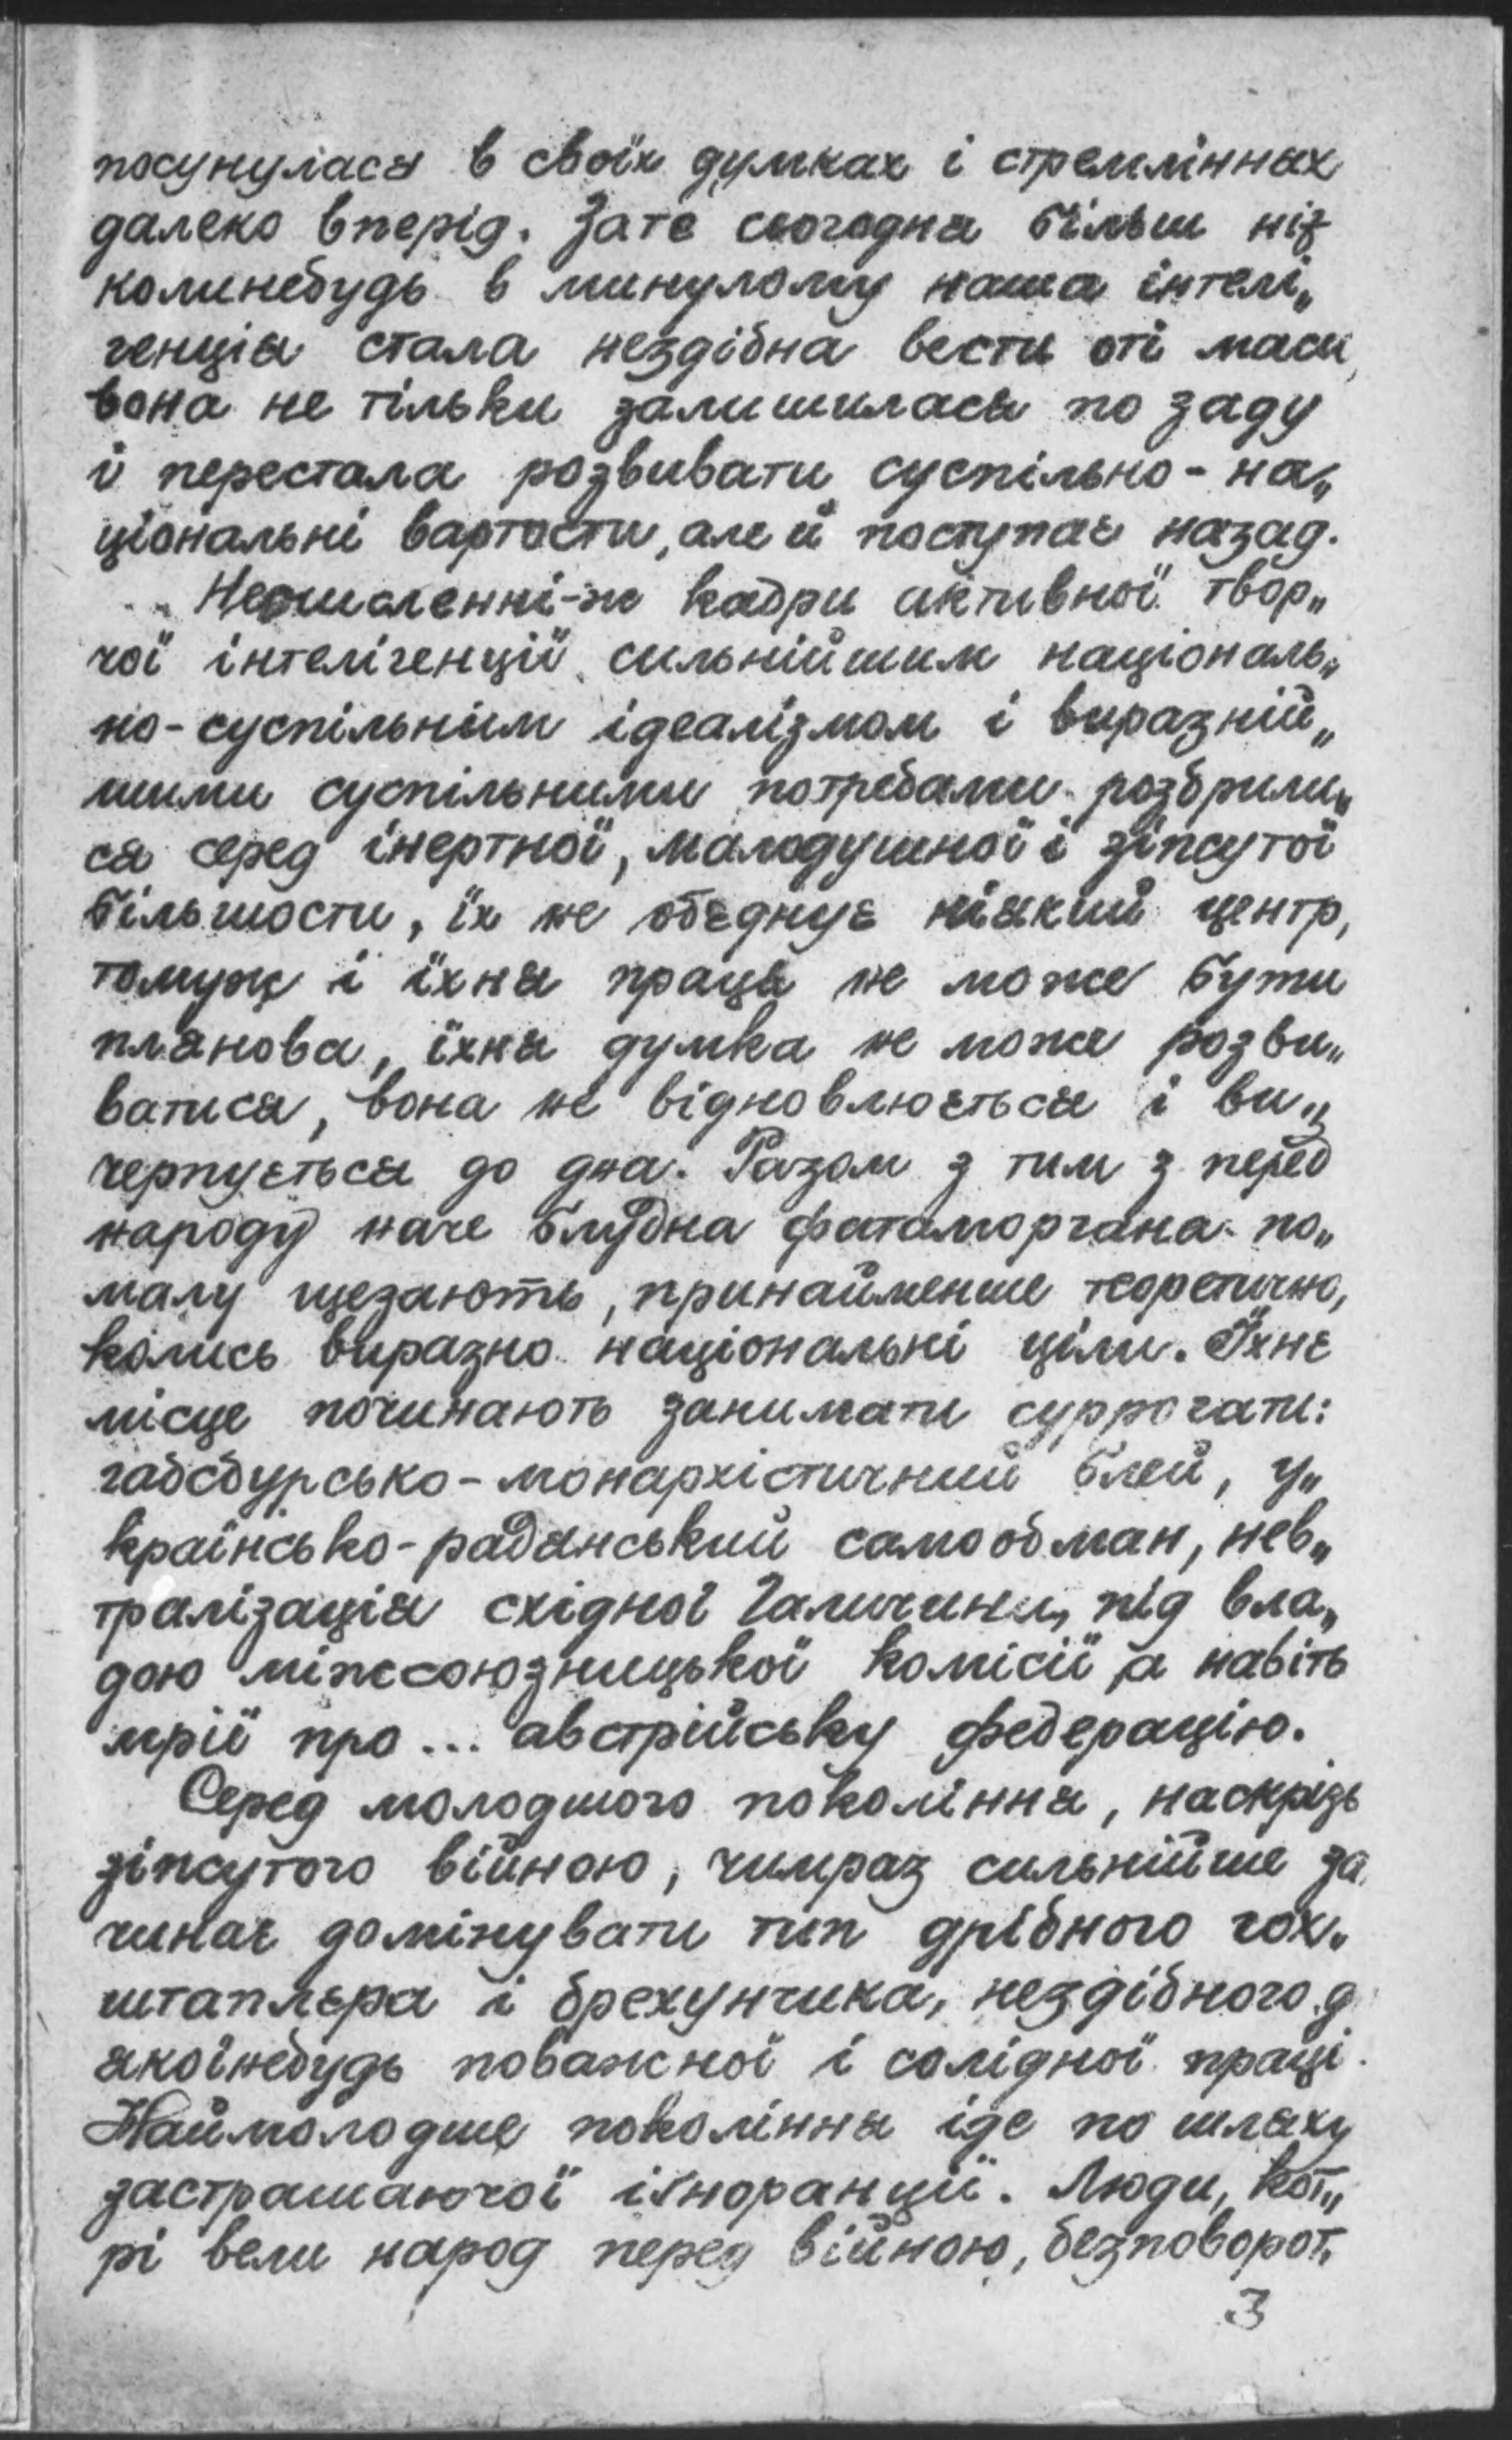 посунулася в своїх думках і стремліннях
далеко вперід. Зате сьогодня більш ніж
колинебудь в минулому наша інтелі„
генція стала нездібна вести оті маси,
вона не тільки залишилася по заду
і перестала розвивати суспільно-на„
ціональні вартости, але й поступає назад.
Нечисленні-ж кадри активної твор„
чої інтелігенції сильнійшим національ„
но-суспільним ідеалізмом і виразній„
шими суспільними потребами розбрили„
ся серед інертної, малодушної і зіпсутої
більшости, їх не обєднує ніякий центр,
томуж і їхня праця не може бути
плянова, їхня думка не може розви„
ватися, вона не відновлюється і ви„
черпується до дна. Разом з тим з перед
народу наче блудна фатаморгана по„
малу щезають, принайменше теоретично,
колись виразно національні ціли. Їхнє
місце починають занимати суррогати:
габсбурсько-монархістичний блеф, у„
країнсько-радянський самообман, нев„
тралізація східної Галичини, під вла„
дою міжсоюзницької комісії, а навіть
мрії про... австрійську федерацію.
Серед молодшого покоління, наскрізь
зіпсутого війною, чимраз сильнійше за
чинає домінувати тип дрібного гох„
штаплєра і брехунчика, нездібного д
якоїнебудь поважної і солідної праці.
Наймолодше покоління іде по шляху
застрашаючої іґноранції. Люди, кот„
рі вели народ перед війною, безповорот„
3